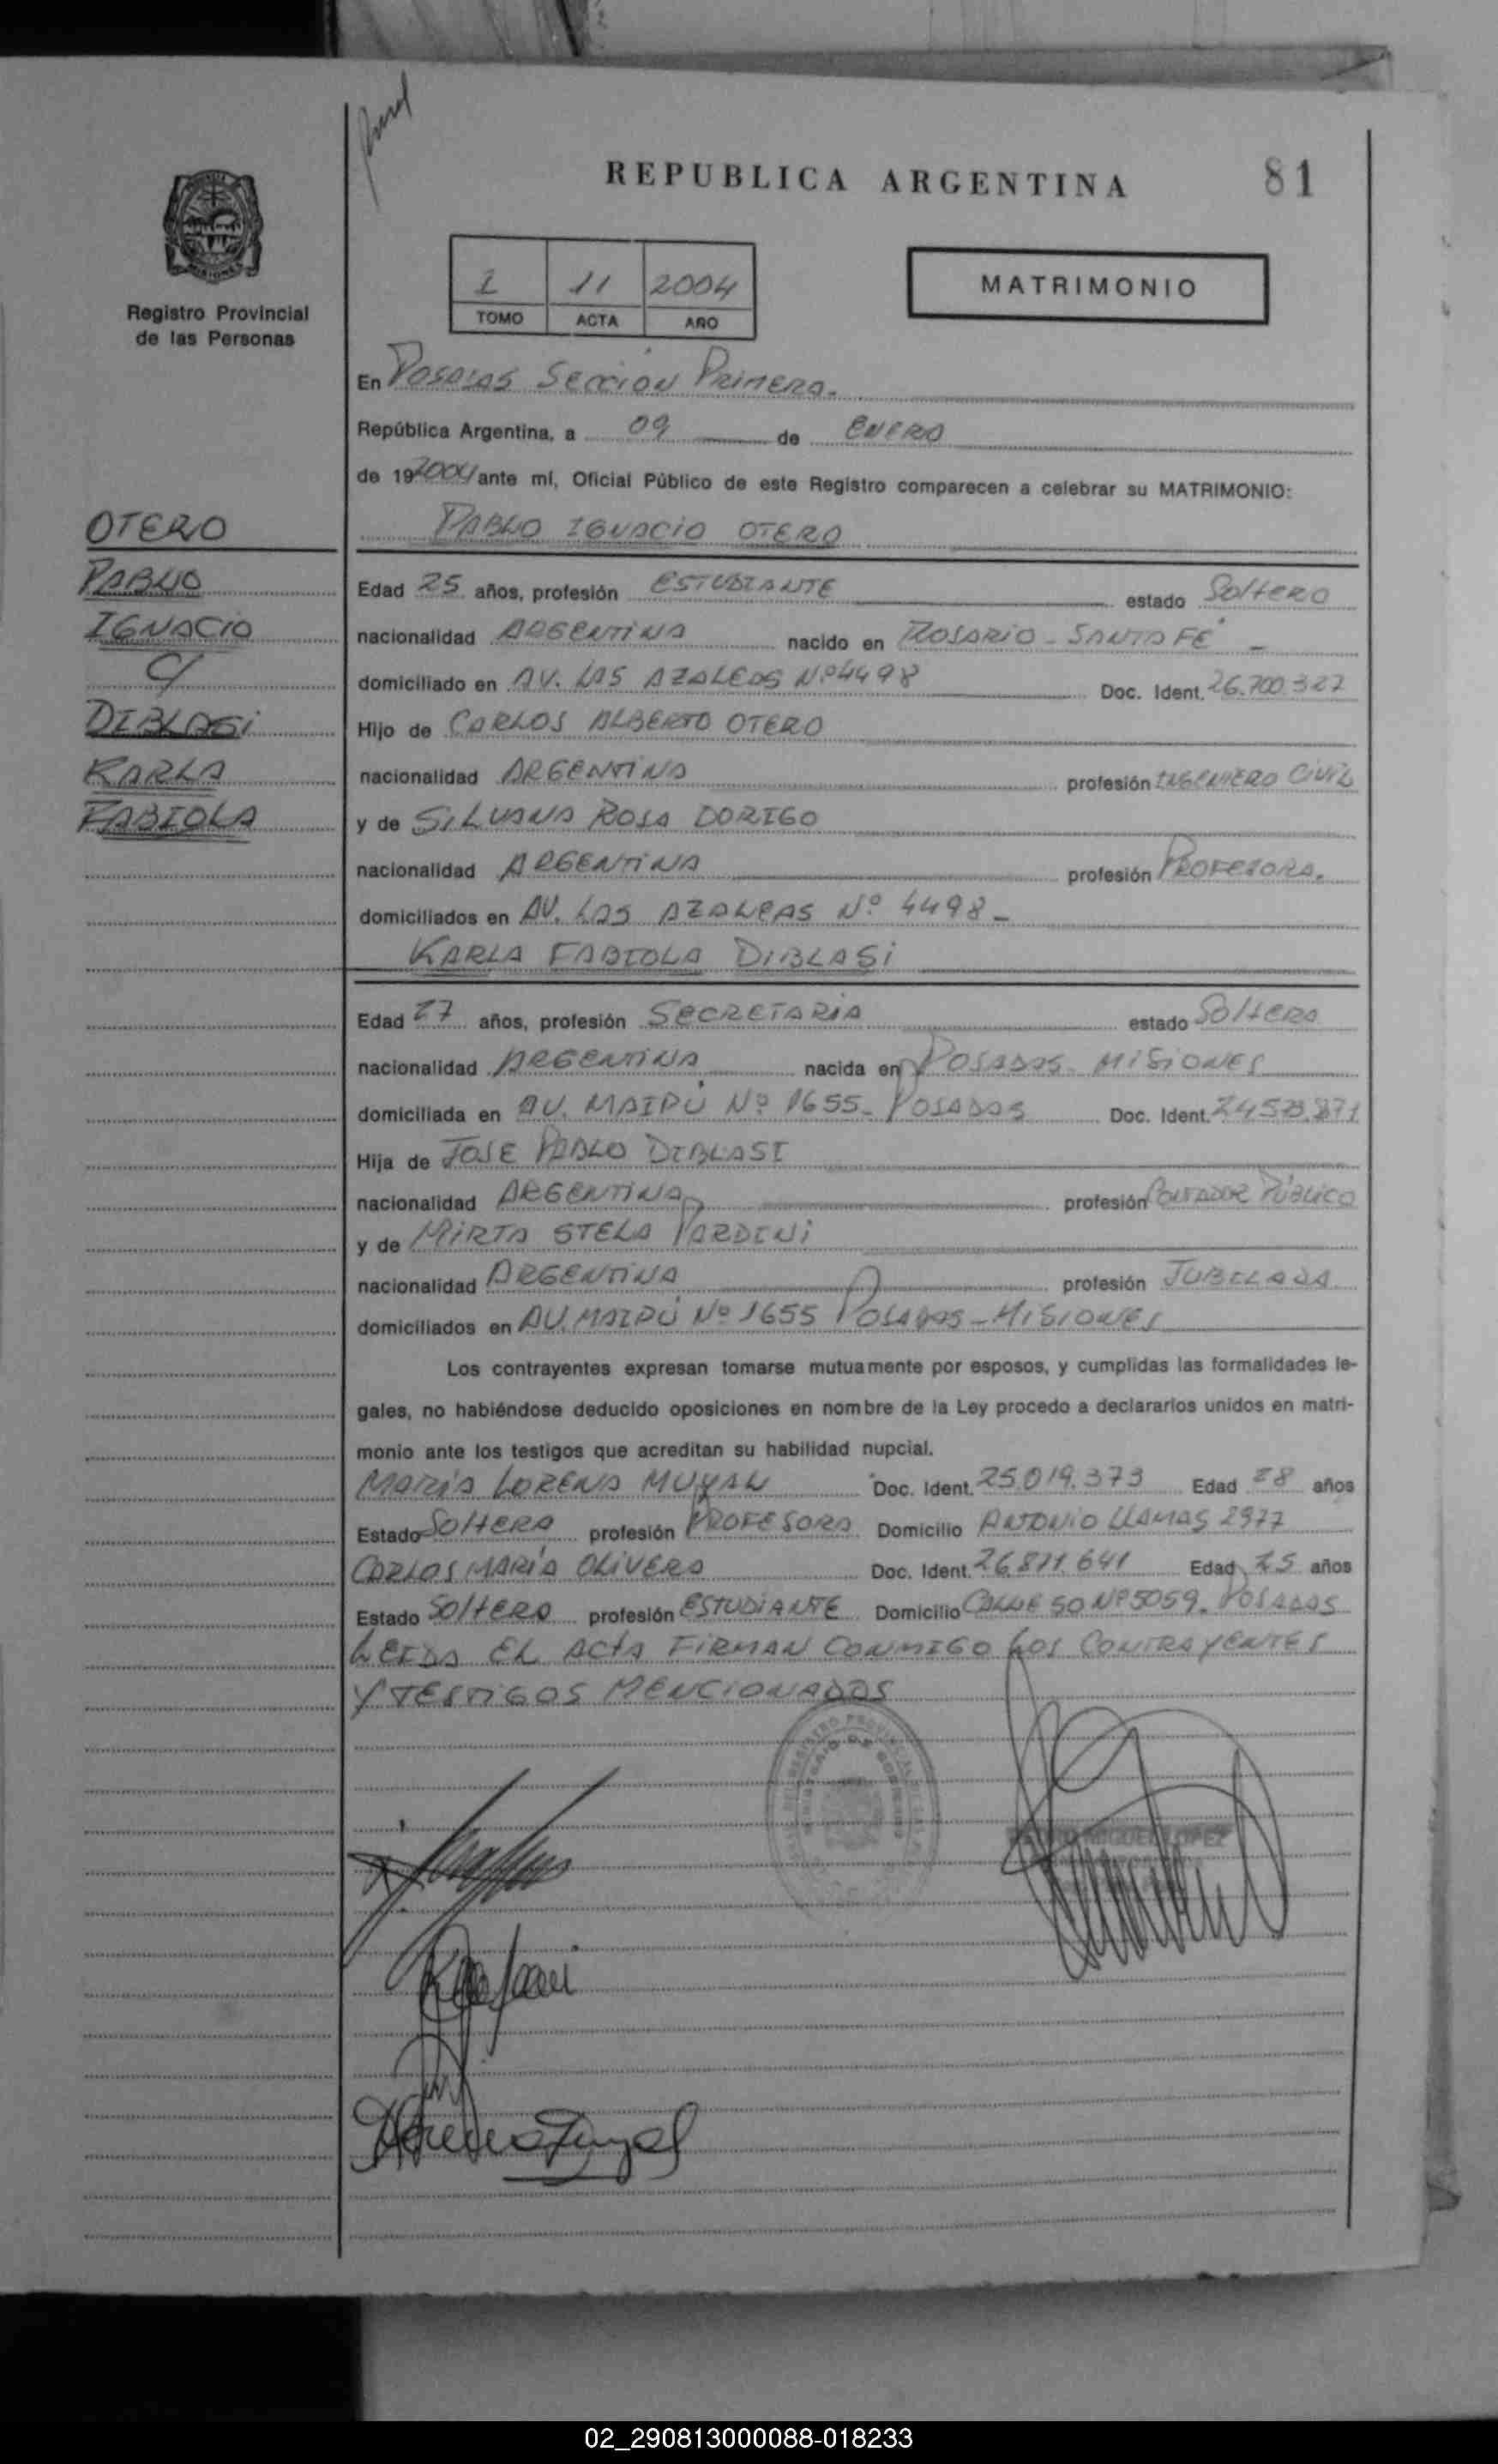 REPUBLICA ARGENTINA
81
Registro Provincial
de las Personas
1 11 2004
TOMO ACTA AÑO
MATRIMONIO
En POSADAS SECCIÓN PRIMERA.
República Argentina, a 09 de ENERO
de 19 2004 ante mí, Oficial Público de este Registro comparecen a celebrar su MATRIMONIO:
OTERO
PABLO
IGNACIO
C/
DIBLASI
KARLA
FABIOLA
PABLO IGNACIO OTERO
Edad 25 años, profesión ESTUDIANTE estado SOLTERO
nacionalidad ARGENTINA nacido en ROSARIO - SANTA FE -
domiciliado en AV. LAS AZALEAS Nº 4498 Doc. Ident. 26.700.327
Hijo de CARLOS ALBERTO OTERO
nacionalidad ARGENTINA profesión INGENIERO CIVIL
y de SILVANA ROSA DORIGO
nacionalidad ARGENTINA profesión PROFESORA.
domiciliados en AV. LAS AZALEAS Nº 4498 -
KARLA FABIOLA DIBLASI
Edad 27 años, profesión SECRETARIA estado SOLTERA
nacionalidad ARGENTINA nacida en POSADAS - MISIONES
domiciliada en AV. MAIPÚ Nº 1655 - POSADAS Doc. Ident.
Hija de JOSE PABLO DIBLASI
nacionalidad ARGENTINA profesión CONTADOR PÚBLICO
y de MIRTA STELA PARDINI
nacionalidad ARGENTINA profesión JUBILADA
domiciliados en AV. MAIPÚ Nº 1655 POSADAS - MISIONES
Los contrayentes expresan tomarse mutuamente por esposos, y cumplidas las formalidades le-
gales, no habiéndose deducido oposiciones en nombre de la Ley procedo a declararlos unidos en matri-
monio ante los testigos que acreditan su habilidad nupcial.
MARÍA LORENA MUYAL Doc. Ident. 25.019.373 Edad 28 años
Estado SOLTERA profesión PROFESORA Domicilio ANTONIO LLAMAS 2977
CARLOS MARÍA OLIVERA Doc. Ident. 26.871.641 Edad 25 años
Estado SOLTERO profesión ESTUDIANTE Domicilio CALLE 50 Nº 5059. POSADAS
LEIDA EL ACTA FIRMAN CONMIGO LOS CONTRAYENTES
Y TESTIGOS MENCIONADOS
MIGUEL LOPEZ
02_290813000088-018233